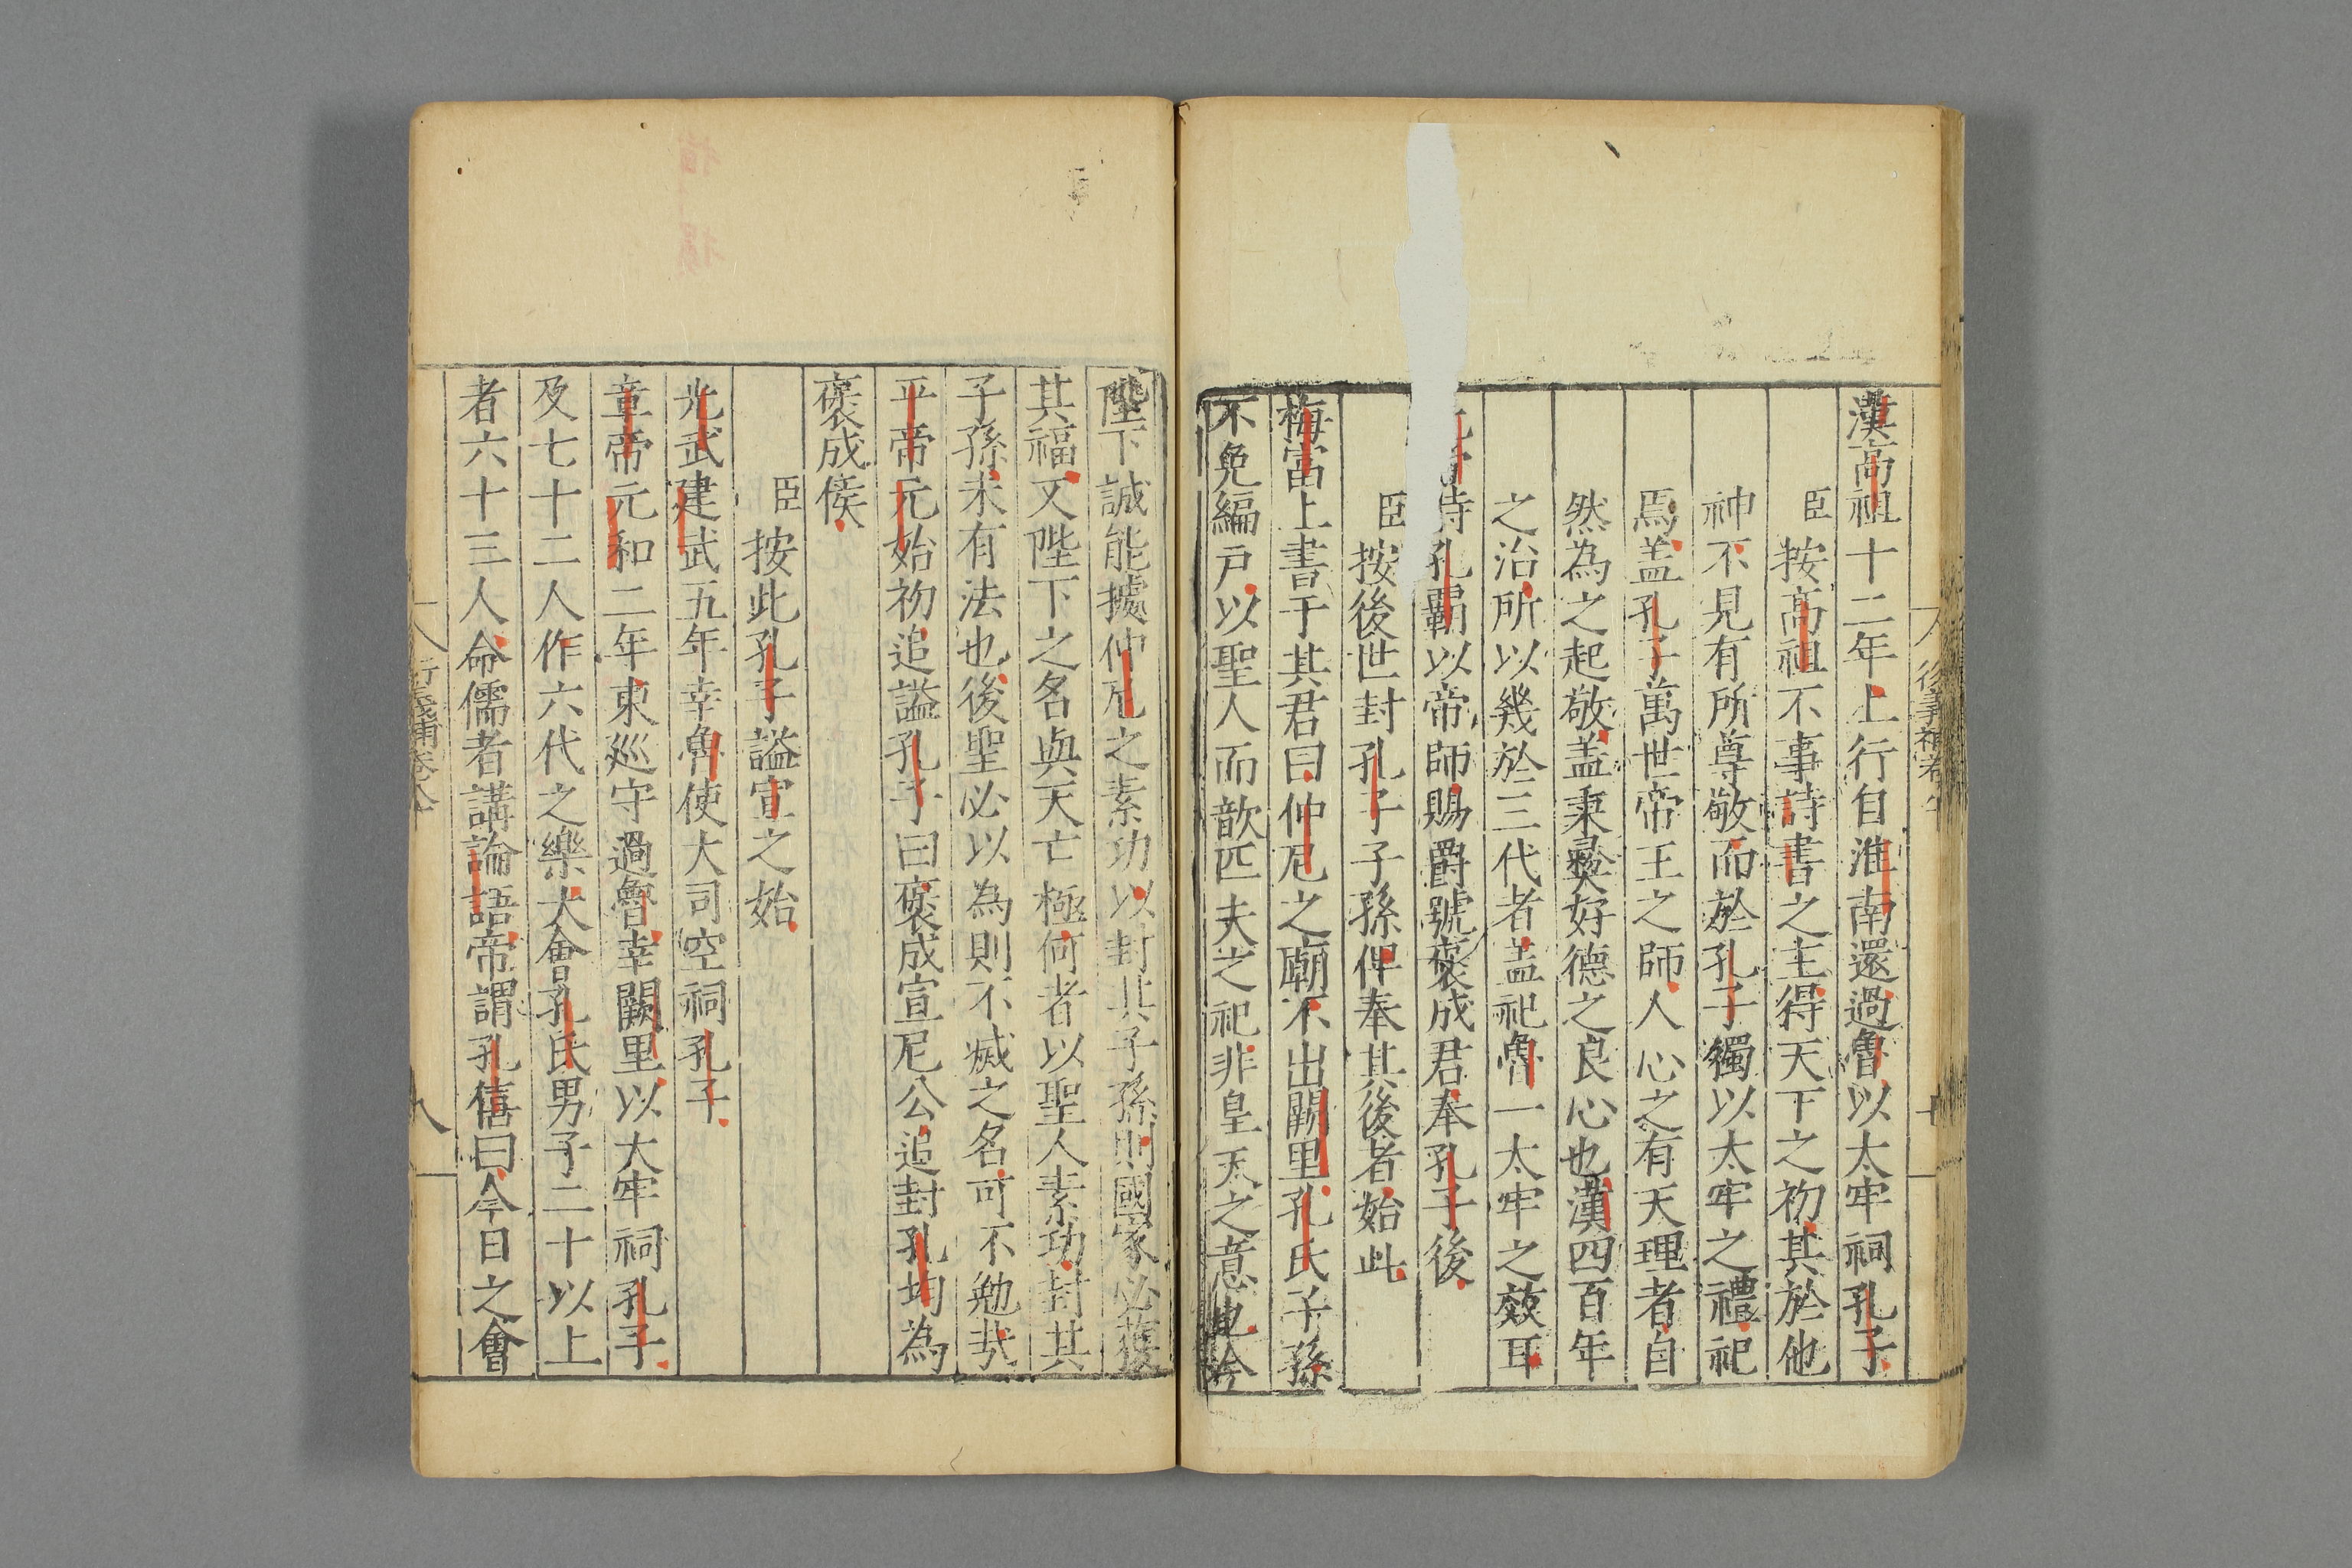 漢高祖十二年上行自淮南還過魯以太牢祠孔子
臣按高祖不事詩書之主得天下之初其於他
神不見有所尊敬而於孔子獨以太牢之禮祀
焉盖孔子萬世帝王之師人心之有天理者自
然為之起敬盖秉彜好德之良心也漢四百年
之治所以幾於三代者盖祀魯一太牢之效耳
時孔霸以帝師賜爵號褒成君奉孔子後
臣按後世封孔子子孫俾奉其後者始此
梅富上書于其君曰仲尼之廟不出闕里孔氏子孫
不免編戸以聖人而歆匹夫之祀非皇天之意也今
陛下誠能據仲尼之素功以封其子孫則國家必獲
其福又陛下之名與天亡極何者以聖人素功封其
子孫未有法也後聖必以為則不滅之名可不勉哉
平帝元始初追謚孔子曰褒成宣尼公追封孔均為
褒成侯
臣按此孔子謚宣之始
光武建武五年幸魯使大司空祠孔子
章帝元和二年東廵守過魯幸闕里以大牢祠孔子
及七十二人作六代之樂大會孔氏男子二十以上
者六十三人命儒者講論語帝謂孔僖曰今日之會